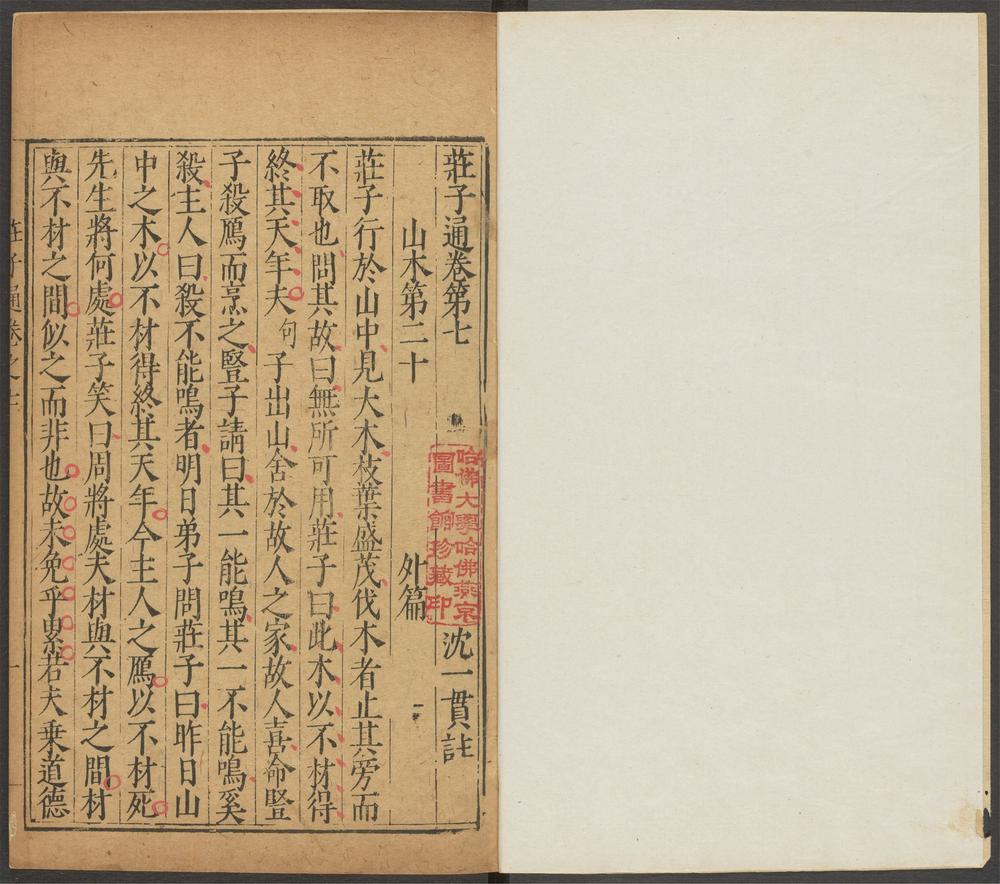 莊子通卷第七 沈一貫註
山木第二十 外篇
莊子行於山中見大木枝葉盛茂伐木者止其旁而
不取也問其故曰無所可用莊子曰此木以不材得
終其天年夫 句 子出山舍於故人之家故人喜命豎
子殺鴈而烹之豎子請曰其一能鳴其一不能鳴奚
殺主人曰殺不能鳴者明日弟子問莊子曰昨日山
中之木以不材得終其天年今主人之鴈以不材死
先生將何處莊子笑曰周將處夫材與不材之間材
與不材之間似之而非也故未免乎累若夫乗道德
莊子通卷之七 一
哈佛大學哈佛燕京
圖書館珍藏印